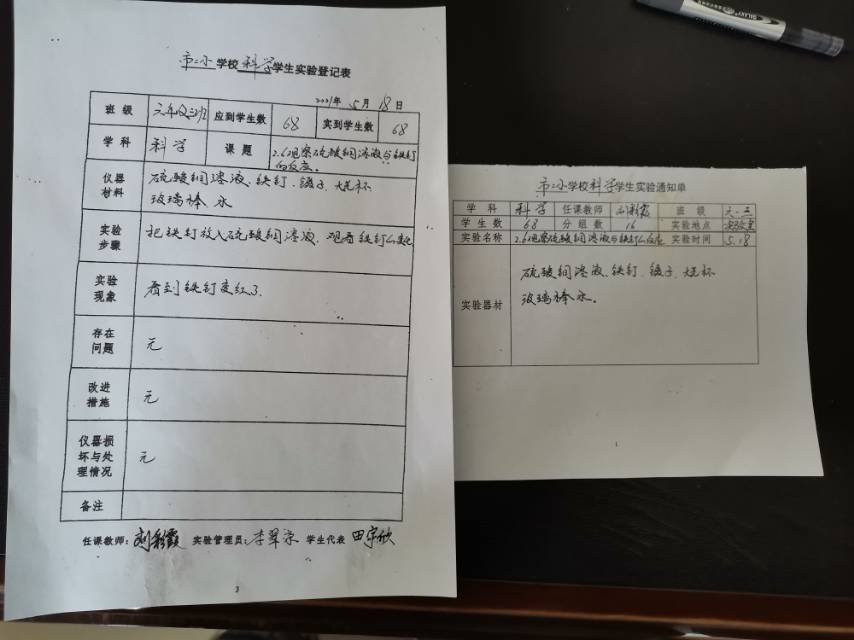 市二小学校科学学生实验登记表
2021年5月18日
班级 六年级三班 应到学生数 68 实到学生数 68
学科 科学 课题 2.6观察硫酸铜溶液与铁钉
的反应。
仪器材料 硫酸铜溶液、铁钉、镊子、烧杯
玻璃棒、水
实验步骤 把铁钉放入硫酸铜溶液,观看铁钉的变化
实验现象 看到铁钉变红了.
存在问题 元
改进措施 元
仪器损坏与处理情况 元
备注
任课教师:刘彩霞 实验管理员:李翠 学生代表 田宇欣
3
市二小学校科学学生实验通知单
学科 科学 任课教师 刘彩霞 班级 六.三
学生数 68 分组数 16 实验地点 实验室
实验名称 2.6观察硫酸铜溶液与铁钉的反应 实验时间 5.18
实验器材 硫酸铜溶液、铁钉、镊子、烧杯
玻璃棒、水。
1